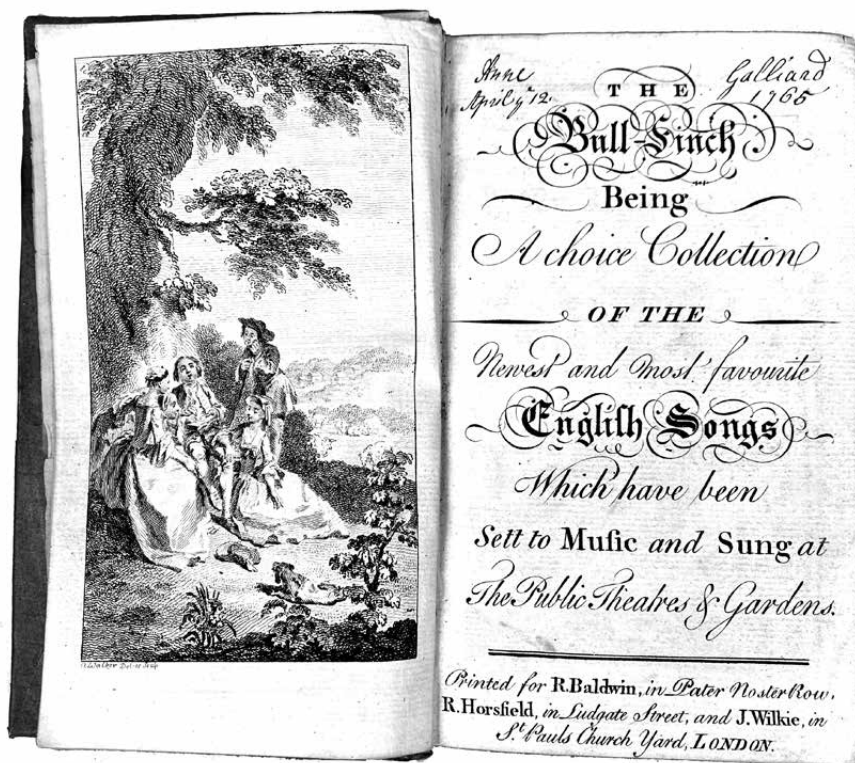 A. Walker Del. et Sculp
Anne Galliard
April yᵉ 12. 1765
THE
Bull-Finch
Being
A choice Collection
OF THE
Newest and most favourite
Engliſh Songs
Which have been
Sett to Muſic and Sung at
The Public Theatres & Gardens.
Printed for R. Baldwin, in Pater Noster Row,
R. Horsfield, in Ludgate Street, and J. Wilkie, in
S.ᵗ Pauls Church Yard, LONDON.